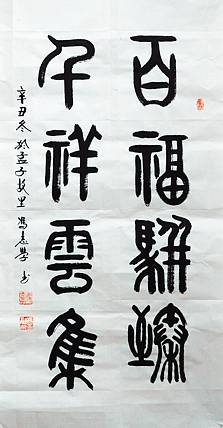 百福駢臻
千祥雲集
辛丑冬於孟子故里馮志學書